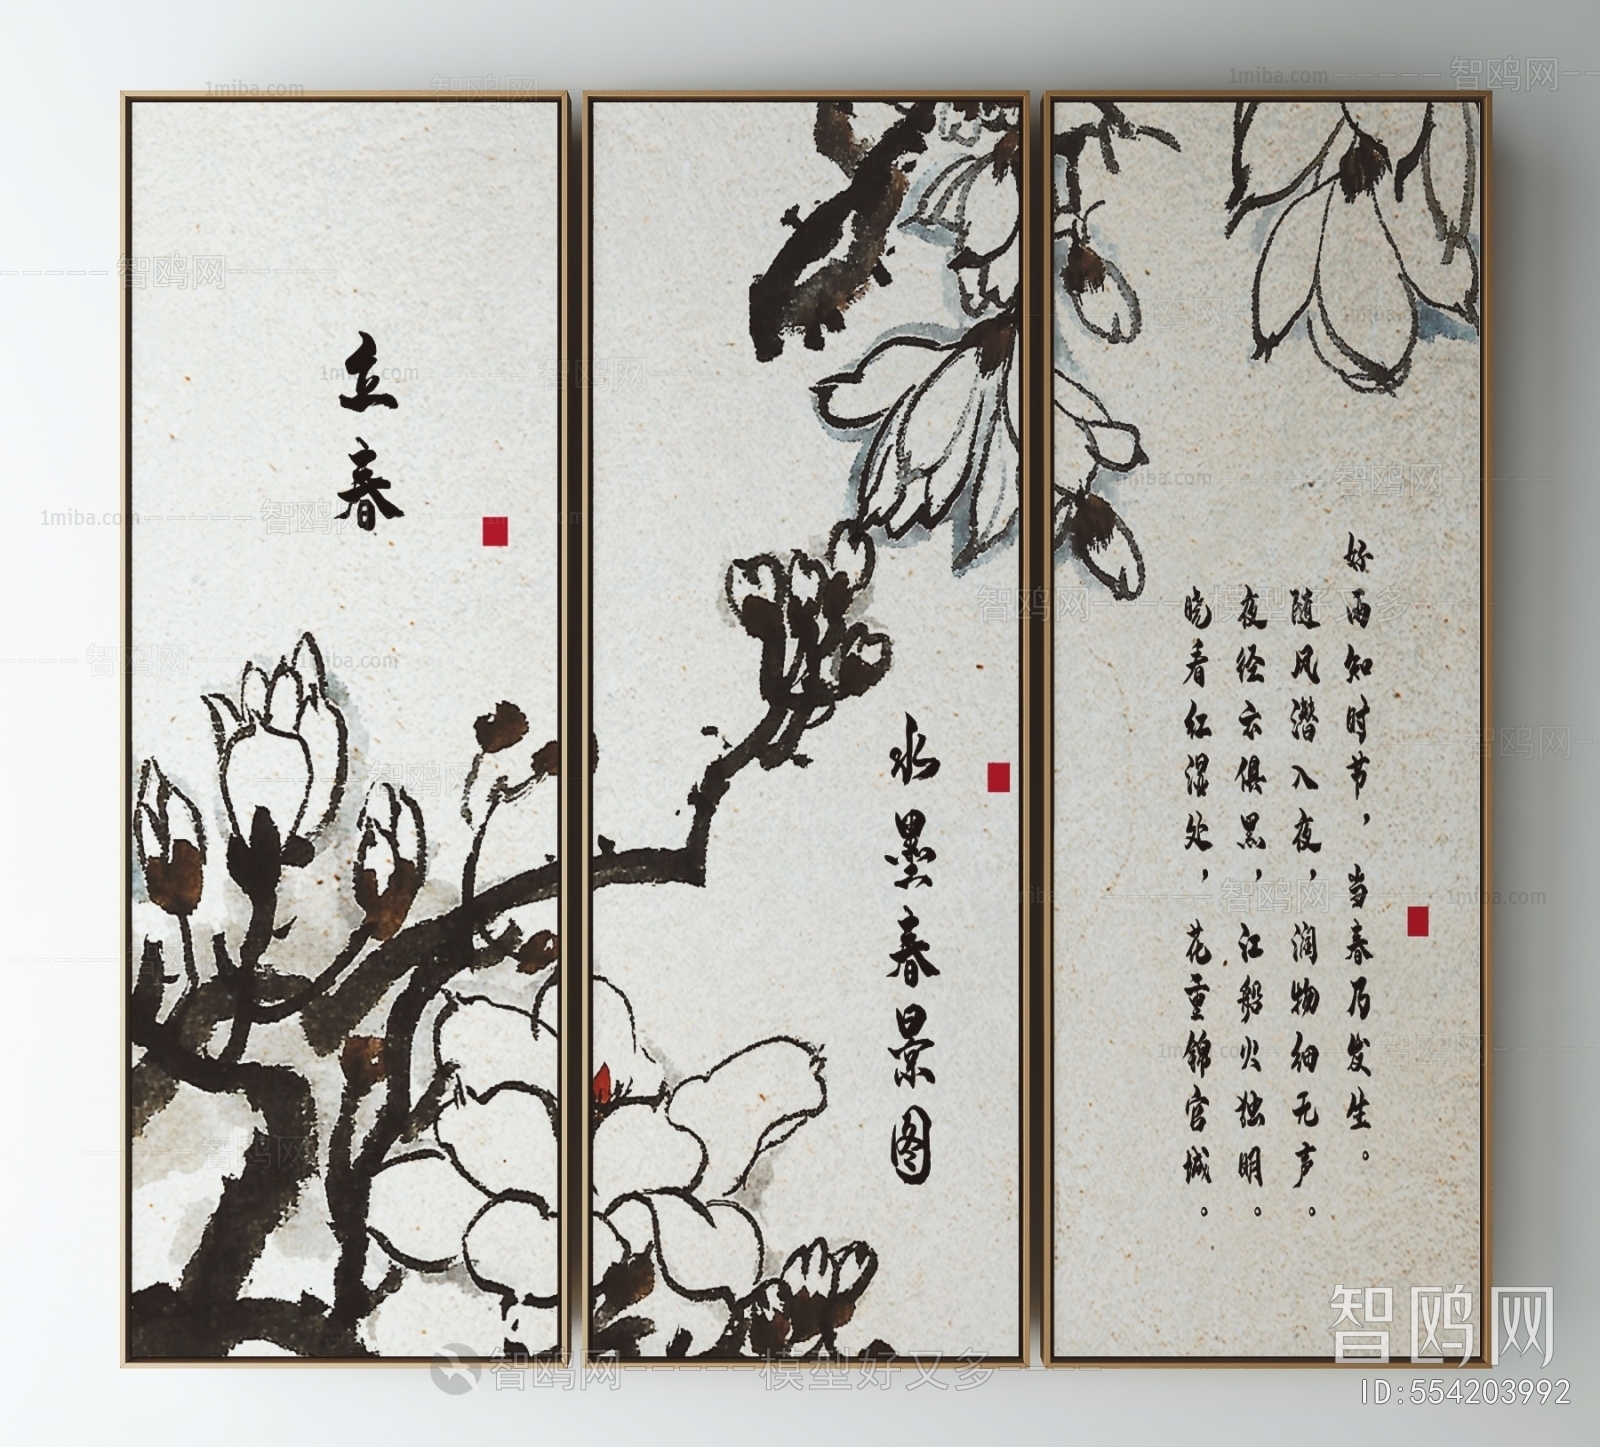 立春
水墨春景图
好雨知时节，当春乃发生。
随风潜入夜，润物细无声。
夜径云俱黑，江船火独明。
晓看红湿处，花重锦官城。
1miba.com
智鸥网
模型好又多
智鸥网
ID:554203992